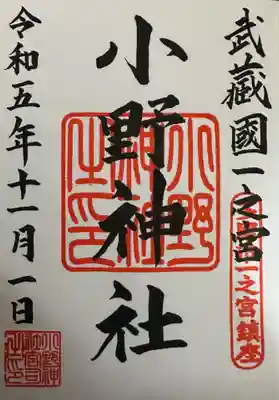 武蔵國一之宮
一之宮鎮座
小野神社
小野神社之印
令和五年十一月一日